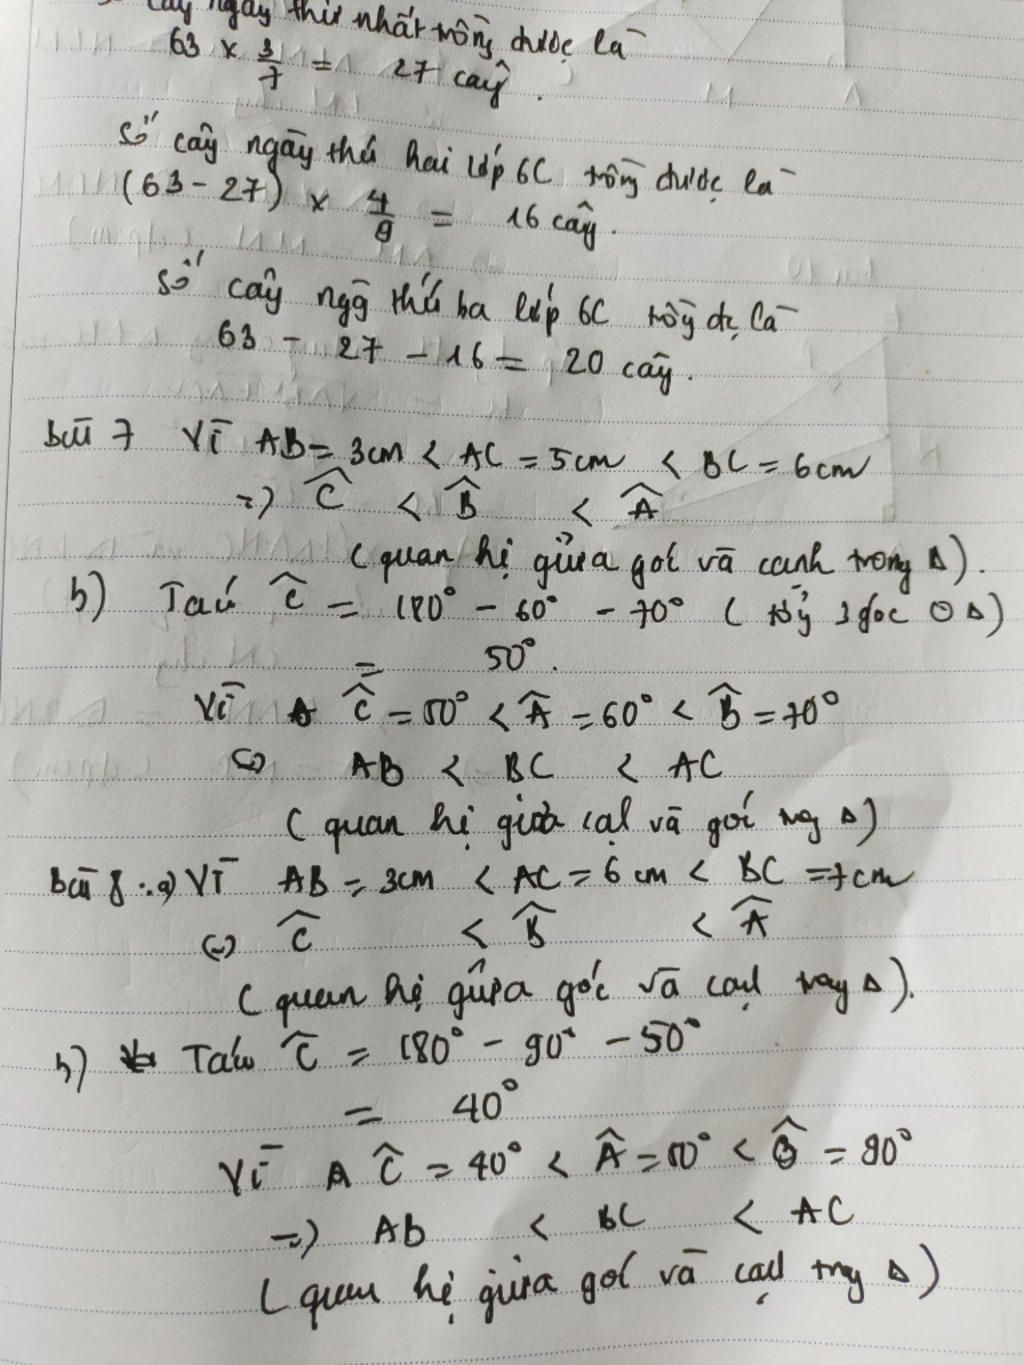 cây ngày thứ nhất trồng được là
63 × 3/7 = 27 cây.
Số cây ngày thứ hai lớp 6C trồng được là
(63 - 27) × 4/9 = 16 cây.
Số cây ngỳ thứ ba lớp 6C trồg đc là
63 - 27 - 16 = 20 cây.
bài 7 Vì AB = 3cm < AC = 5cm < BC = 6cm
=) Ĉ < B̂ < Â
(quan hệ giữa góc và cạnh trong Δ).
b) Ta có Ĉ = 180° - 60° - 70° (tổg 3 góc Δ)
= 50°.
Vì Ĉ = 50° < Â = 60° < B̂ = 70°
=) AB < BC < AC
(quan hệ giữa cạh và góc trog Δ)
bài 8 : a) Vì AB = 3cm < AC = 6cm < BC = 7cm
=) Ĉ < B̂ < Â
(quan hệ giữa góc và cạh trog Δ).
b) Ta có Ĉ = 180° - 90° - 50°
= 40°
Vì Ĉ = 40° < Â = 50° < B̂ = 90°
=) AB < BC < AC
(quan hệ giữa góc và cạh trog Δ)